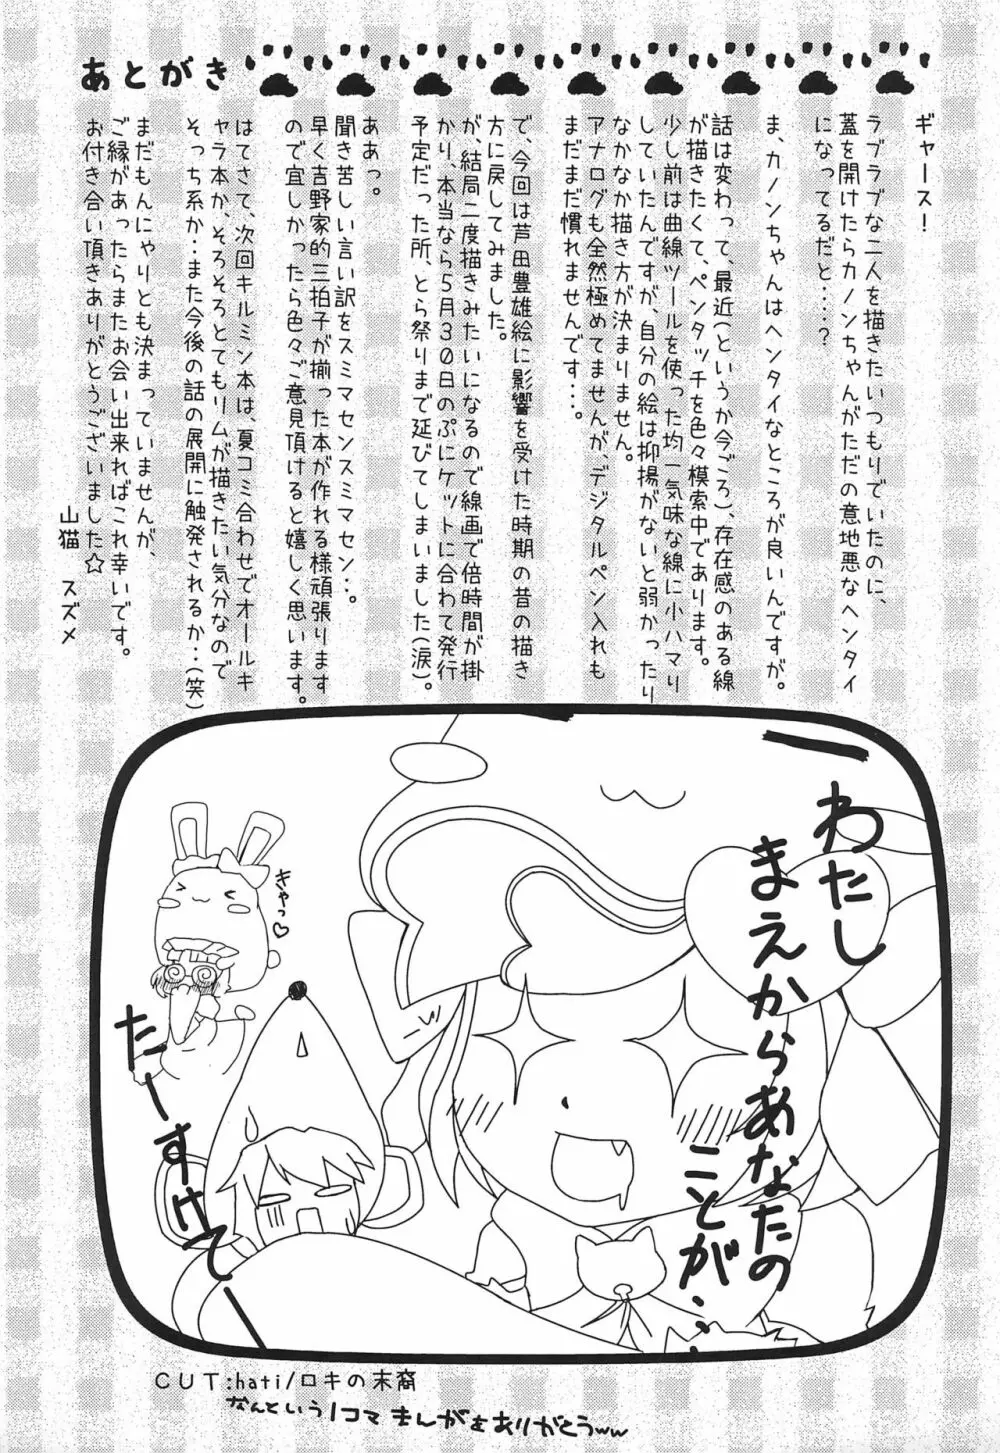 あとがき
ギャース！
ラブラブな二人を描きたいつもりでいたのに、
蓋を開けたらカノンちゃんがただの意地悪なヘンタイ
になってるだと‥‥？
ま、カノンちゃんはヘンタイなところが良いんですが。
話は変わって、最近（というか今ごろ）、存在感のある線
が描きたくて、ペンタッチを色々模索中であります。
少し前は曲線ツールを使った均一気味な線に小ハマり
していたんですが、自分の絵は抑揚がないと弱かったり
なかなか描き方が決まりません。
アナログも全然極めてませんが、デジタルペン入れも
まだまだ慣れませんです‥‥。
で、今回は芦田豊雄絵に影響を受けた時期の昔の描き
方に戻してみました。
が、結局二度描きみたいになるので線画で倍時間が掛
かり、本当なら５月３０日のぷにケットに合わて発行
予定だった所、とら祭りまで延びてしまいました（涙）。
ああっ。
聞き苦しい言い訳をスミマセンスミマセン‥。
早く吉野家的三拍子が揃った本が作れる様頑張ります
ので宜しかったら色々ご意見頂けると嬉しく思います。
はてさて、次回キルミン本は、夏コミ合わせでオールキ
ャラ本か、そろそろとてもリムが描きたい気分なので
そっち系か‥また今後の話の展開に触発されるか‥（笑）
まだもんにゃりとも決まっていませんが、
ご縁があったらまたお会い出来ればこれ幸いです。
お付き合い頂きありがとうございました☆
山猫 スズメ
わたし
まえからあなたの
ことが‥‥
きゃっ♡
たーすけてー
CUT:hati/ロキの末裔
なんという1コマ まんがをありがとうww